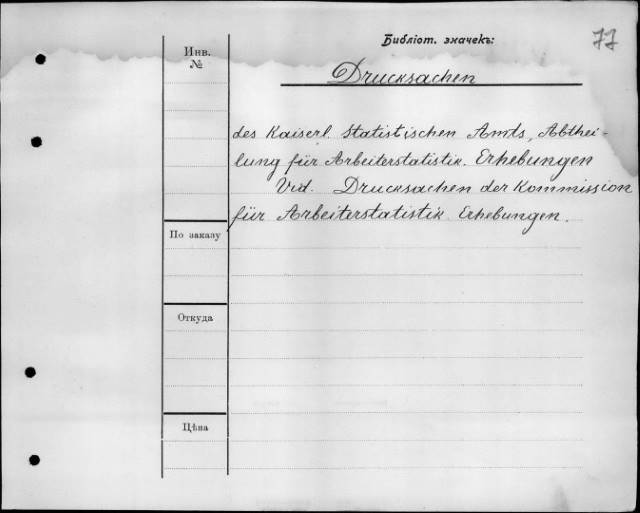 Библіот. значекъ:
77
Инв.
№
Drucksachen
des Kaiserl. Statistischen Amts, Abthei-
lung für Arbeiterstatistik. Erhebungen
Vid. Drucksachen der Kommission
für Arbeiterstatistik Erhebungen.
По заказу
Откуда
Цѣна